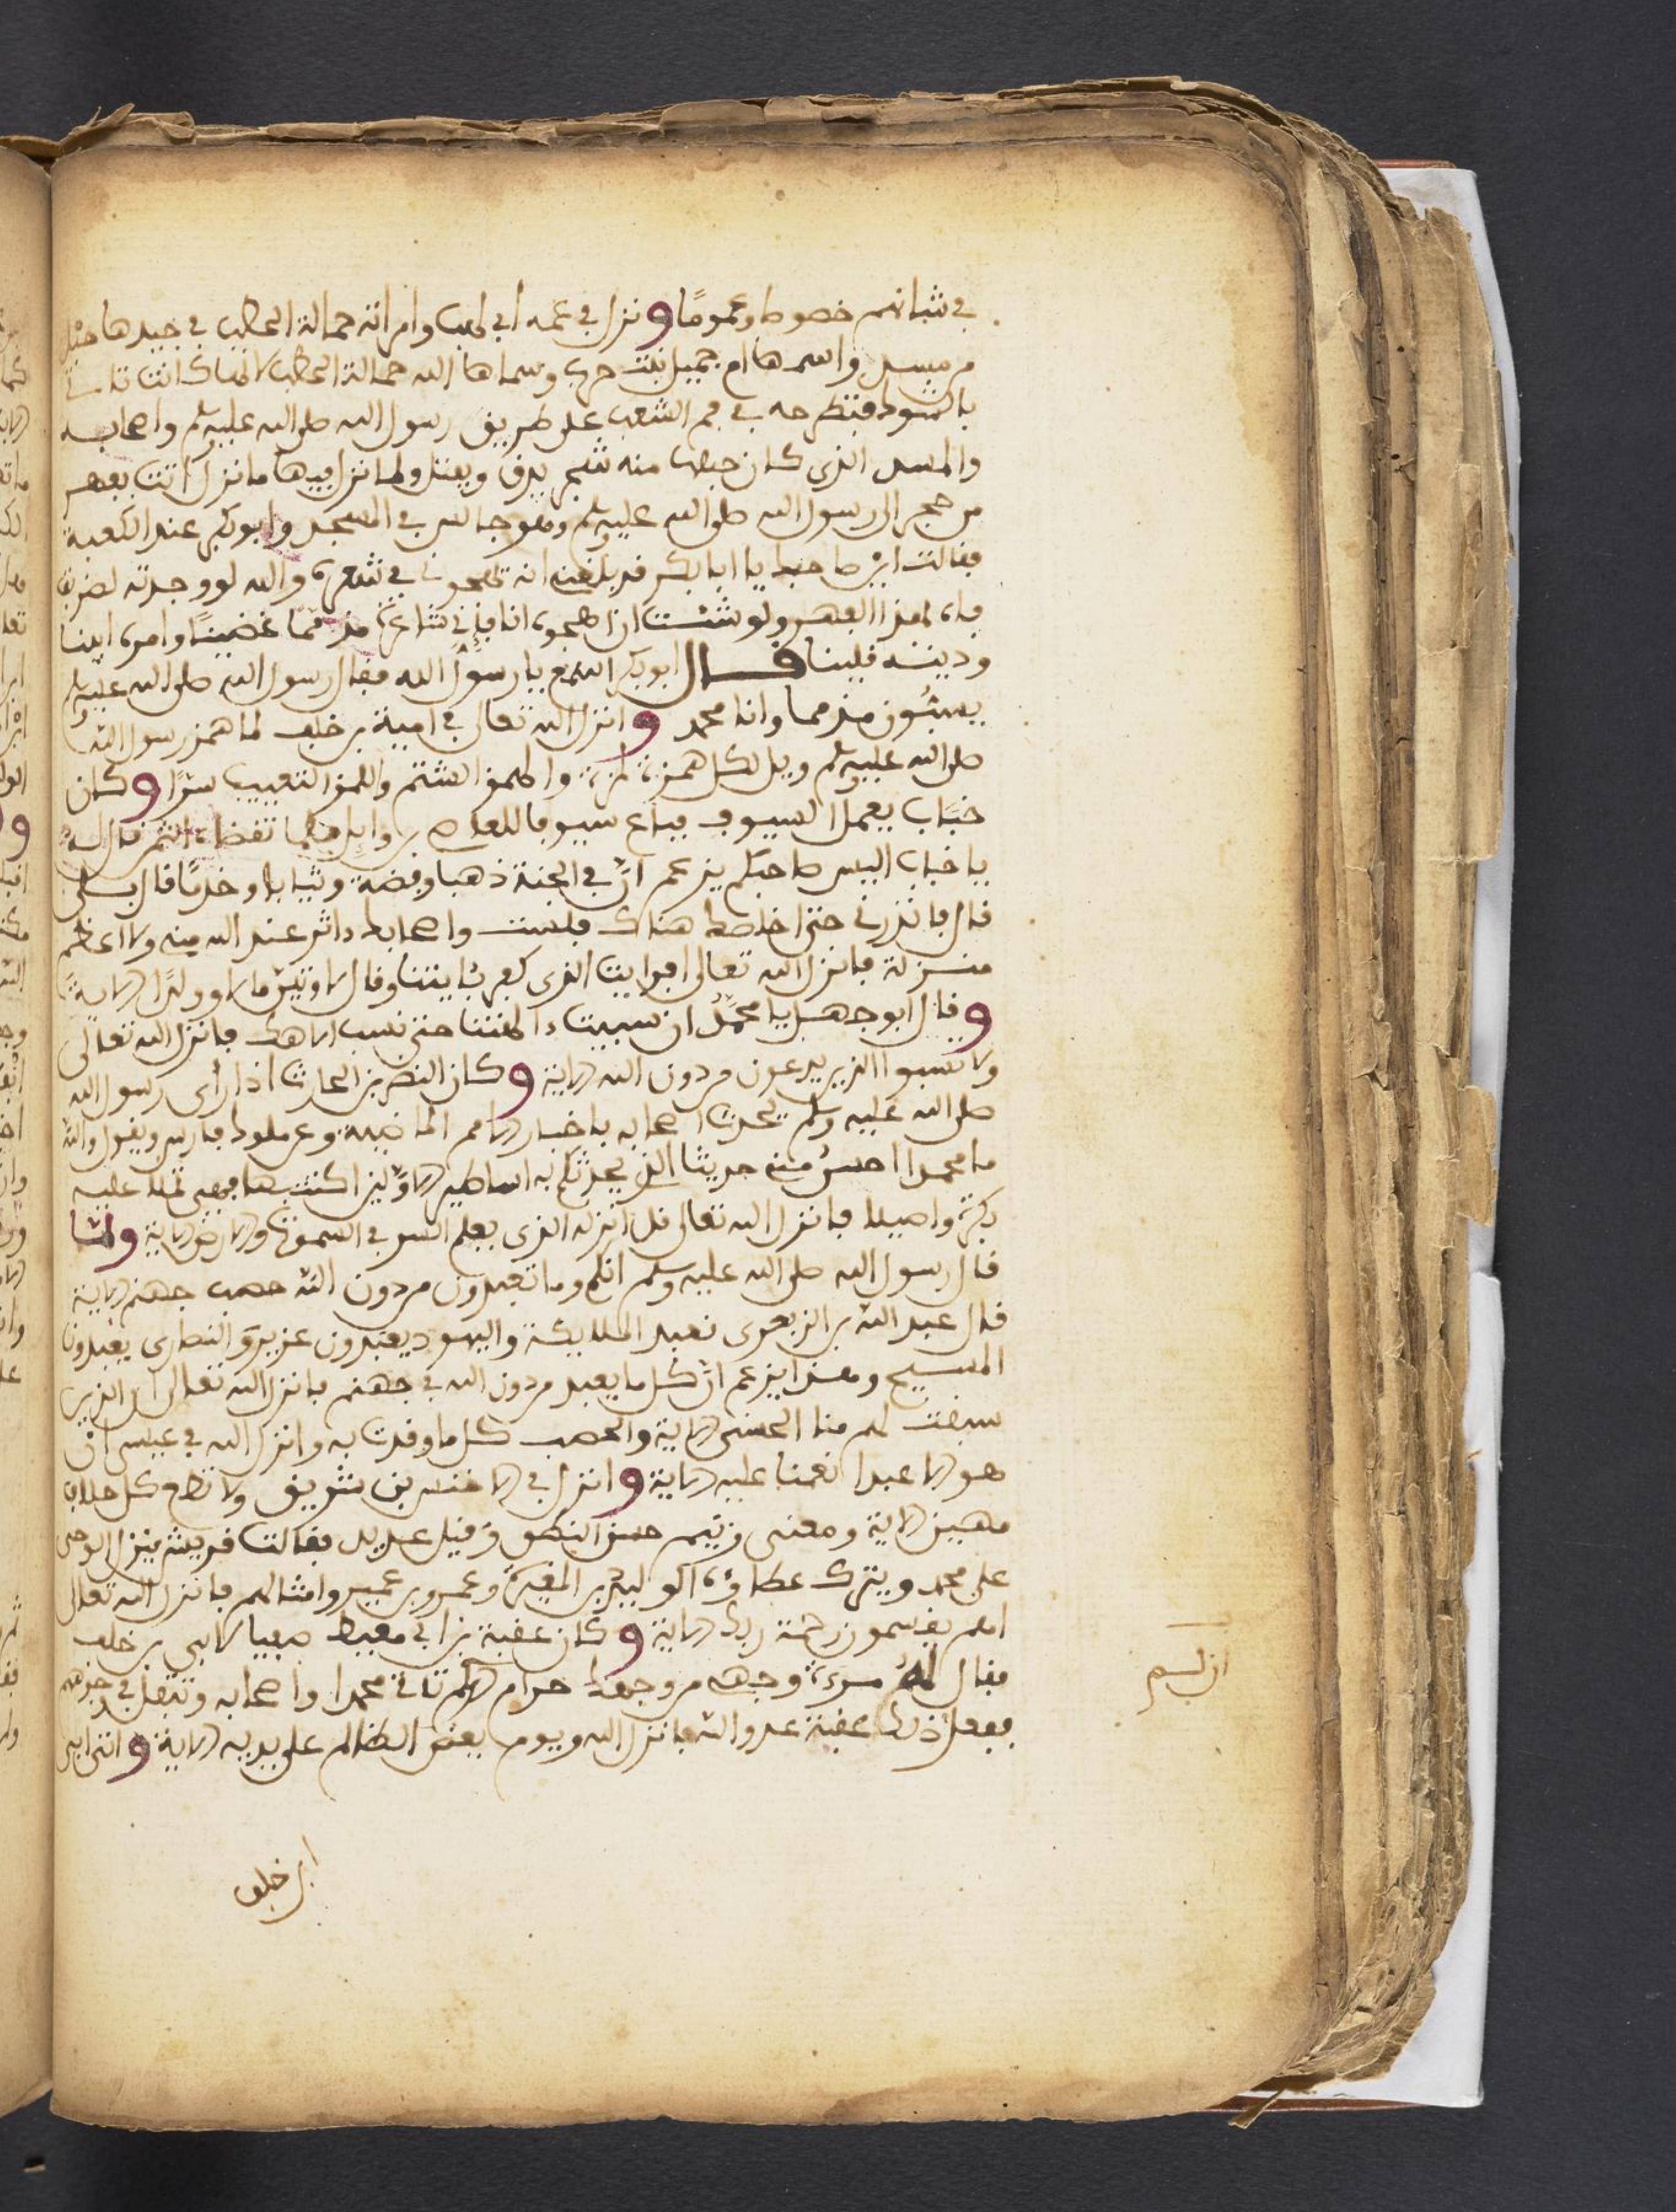 في شانهم خصوصا وعموما ونزل في عمه أبي لهب وامراته حمالة الحطب في جيدها حبل
من مسد واسمها ام جميل بنت حرب وسماها الله حمالة الحطب لانها كانت تاتي
بالشوك فتطرحه في فم الشعب على طريق رسول الله صلى الله عليه وسلم واصحابه
والمسد الذي كان حبلها منه شجر يدق ويفتل ولما نزل فيها ما نزل اتت بفهر
من حجر الى رسول الله صلى الله عليه وسلم وهو جالس في المسجد وابو بكر عند الكعبة
فقالت اين صاحبك يا ابا بكر قد بلغني انه يهجوني في شعره والله لو وجدته لضربت
فاه بهذا الفهر ولو شئت ان اهجوه انا فاني شاعرة مذمما عصينا وامره ابينا
ودينه قلينا قال ابو بكر اتسمع يا رسول الله فقال رسول الله صلى الله عليه وسلم
يسبون مذمما وانا محمد وانزل الله تعالى في امية بن خلف لما همز رسول الله
صلى الله عليه وسلم ويل لكل همزة لمزة والهمز الشتم واللمز التعييب سرا وكان
خباب يعمل السيوف فباع سيوفا للعاص بن وايل فلما تقضاه الثمن قال له
يا خباب اليس صاحبكم يزعم ان في الجنة ذهبا وفضة وثيابا وخدما قال بلى
قال فانذرني حتى اخلصك هناك فلست واصحابك داثر عند الله مني ولا اعظم
منزلة فانزل الله تعالى افرايت الذي كفر بئايتنا وقال لاوتين مالا وولدا الاية
وقال ابو جهل يا محمد ان سببت ءالهتنا حتى نسب الاهك فانزل الله تعالى
ولا تسبوا الذين يدعون من دون الله الاية وكان النضر بن الحارث اذا رأى رسول الله
صلى الله عليه وسلم يحدث اصحابه باخبار الامم الماضية وعن ملوك فارس ويقول والله
ما محمدا احسن مني حديثا الذي يحدثكم به اساطير الاولين اكتتبها فهي تملا عليه
بكرة واصيلا فانزل الله تعالى قل انزله الذي يعلم السر في السموات والارض الاية ولما
قال رسول الله صلى الله عليه وسلم انكم وما تعبدون من دون الله حصب جهنم الاية
قال عبد الله بن الزبعرى نعبد الملايكة واليهود يعبدون عزير والنصارى يعبدون
المسيح وهذا يزعم ان كل ما يعبد من دون الله في جهنم فانزل الله تعالى ان الذين
سبقت لهم منا الحسنى الاية والحصب كل ما وقدت به وانزل الله في عيسى ان
هو الا عبدا انعمنا عليه الاية وانزل في الاخنس بن شريق ولا تطع كل حلاف
مهين الاية ومعنى زنيم حسن النطق وقيل عديد فقالت قريش ينزل الوحي
على محمد ويترك عظماؤه الوليد بن المغيرة وعمرو بن عمير وامثالهم فانزل الله تعالى
اهم يقسمون رحمة ربك الاية وكان عقبة بن أبي معيط صفيا لابي بن خلف
فقال له وجهي من وجهك حرام الم تاتي محمدا واصحابه وتتفل في وجوههم
ففعل ذلك عقبة عدو الله فانزل الله ويوم يعض الظالم على يديه الاية واتى ابي
ابن خلف